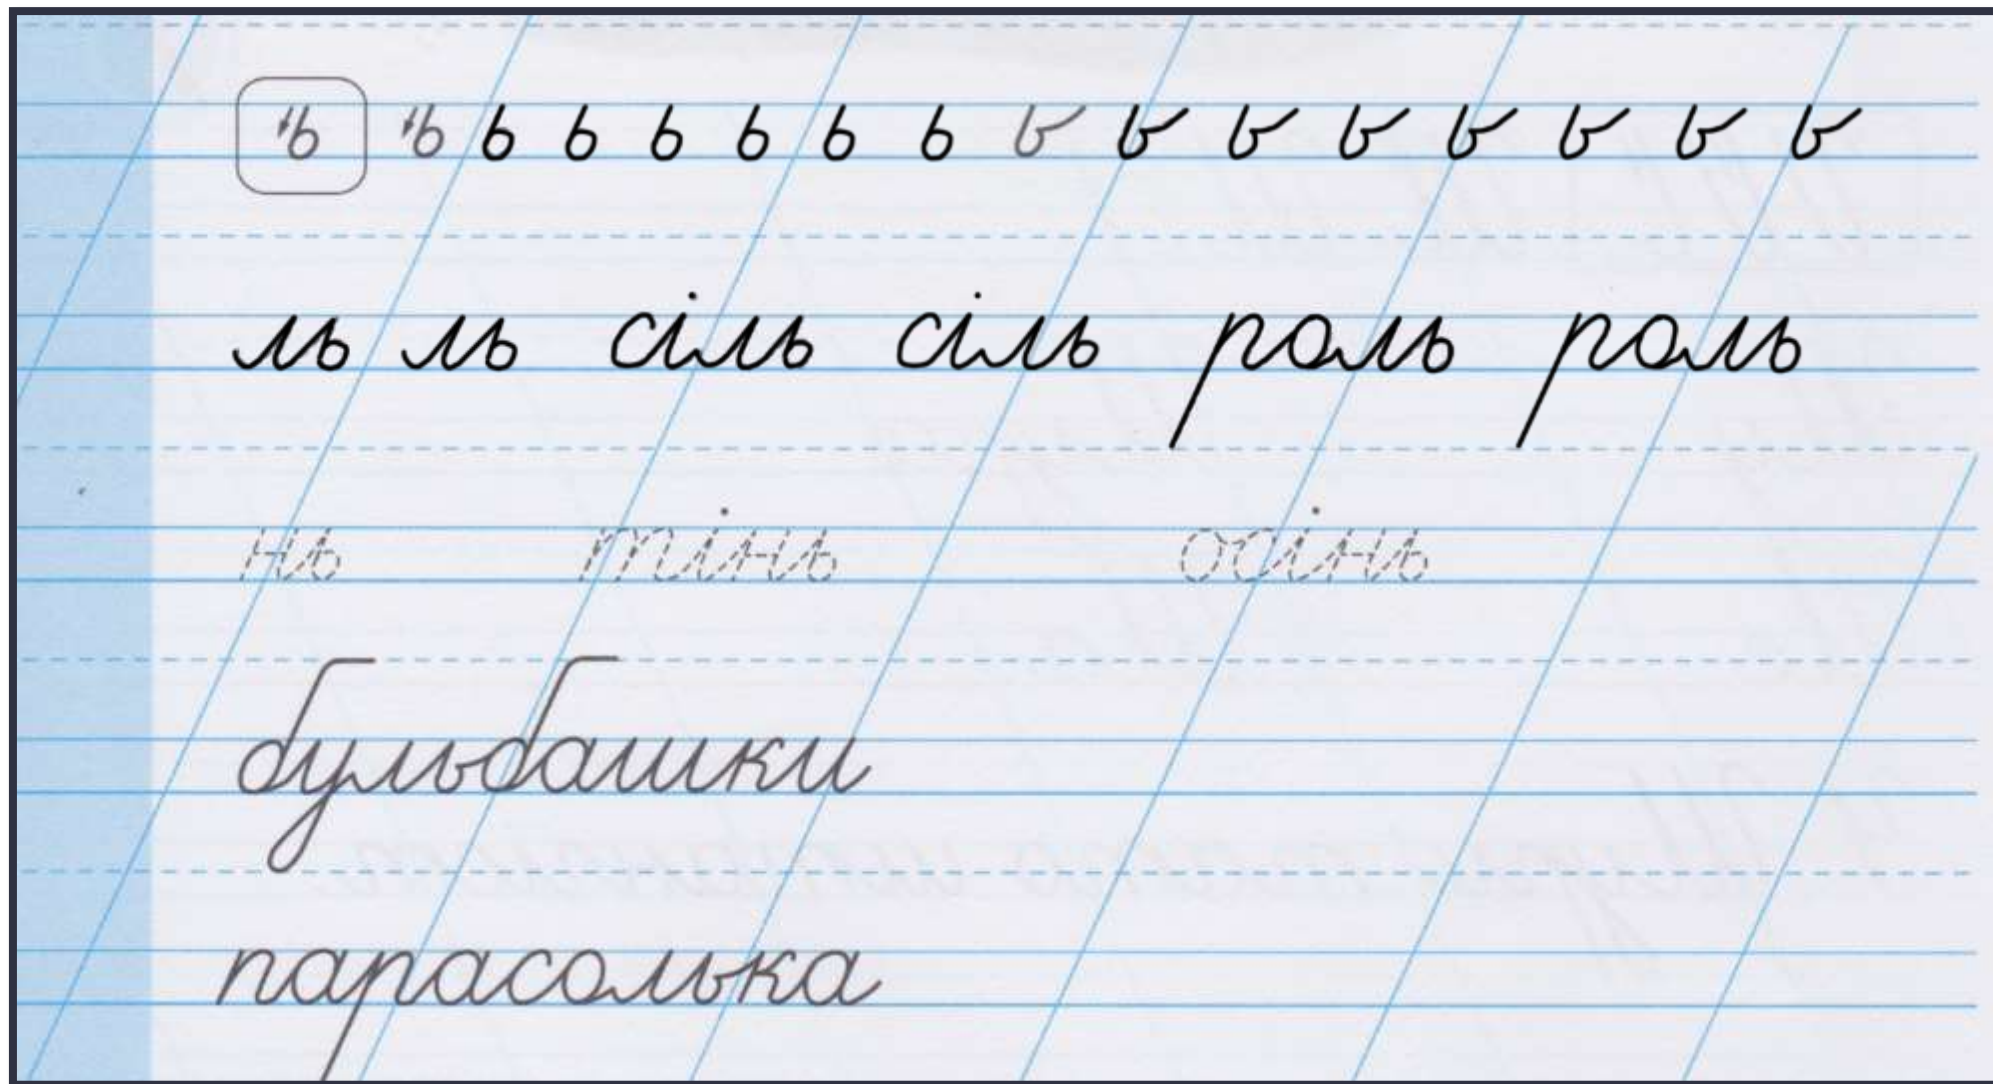 ь ь ь ь ь ь ь ь ь ь ь ь ь ь ь ь
ль ль сіль сіль роль роль
нь тінь осінь
бульбашки
парасолька